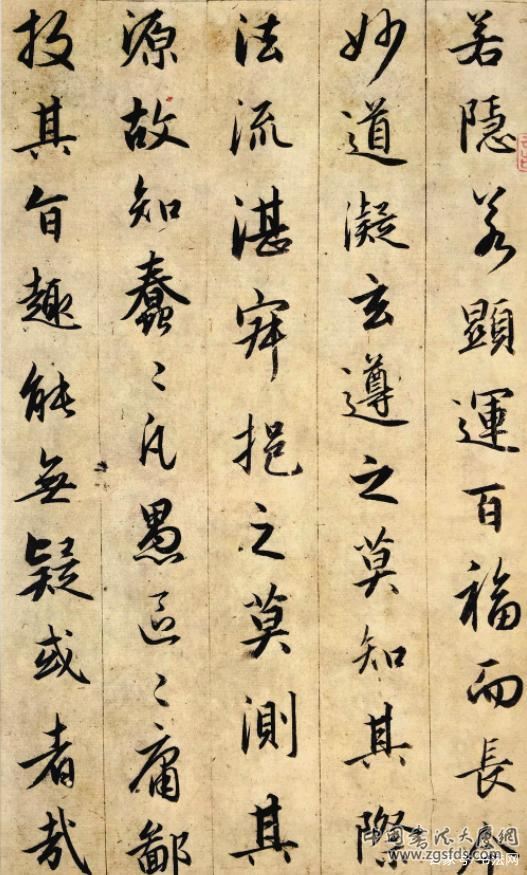 若隱若顯運百福而長今
妙道凝玄遵之莫知其際
法流湛寂挹之莫測其
源故知蠢々凡愚區々庸鄙
投其旨趣能無疑或者哉
中国书法大厦网
www.zgsfds.com